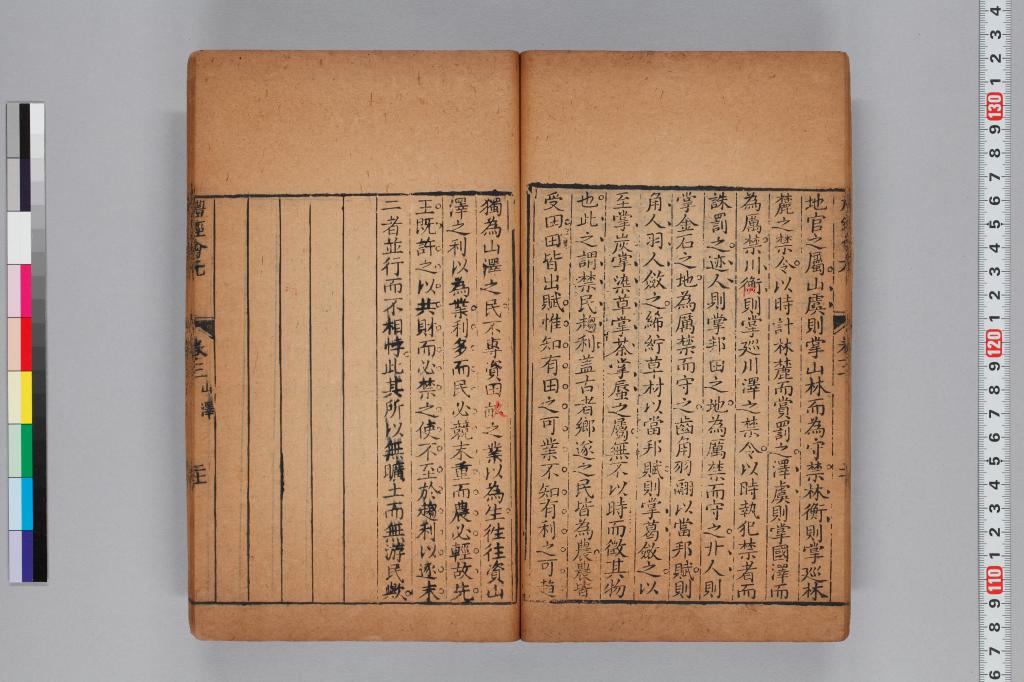 地官之屬山虞則掌山林而為守禁林衡則掌巡林
麓之禁令以時計林麓而賞罰之澤虞則掌國澤而
為厲禁川衡則掌巡川澤之禁令以時執犯禁者而
誅罰之迹人則掌邦田之地為厲禁而守之丱人則
掌金石之地為厲禁而守之齒角羽翮以當邦賦則
角人羽人斂之絺綌草材以當邦賦則掌葛斂之以
至掌炭掌染草掌荼掌蜃之屬無不以時而徵其物
也此之謂禁民趨利盖古者鄉遂之民皆為農農皆
受田田皆出賦惟知有田之可業不知有利之可趨
獨為山澤之民不專資田畝之業以為生往往資山
澤之利以為業利多而民必競末重而農必輕故先
王既許之以共財而必禁之使不至於趨利以逐末
二者並行而不相悖此其所以無曠土而無游民歟
卷三
山澤